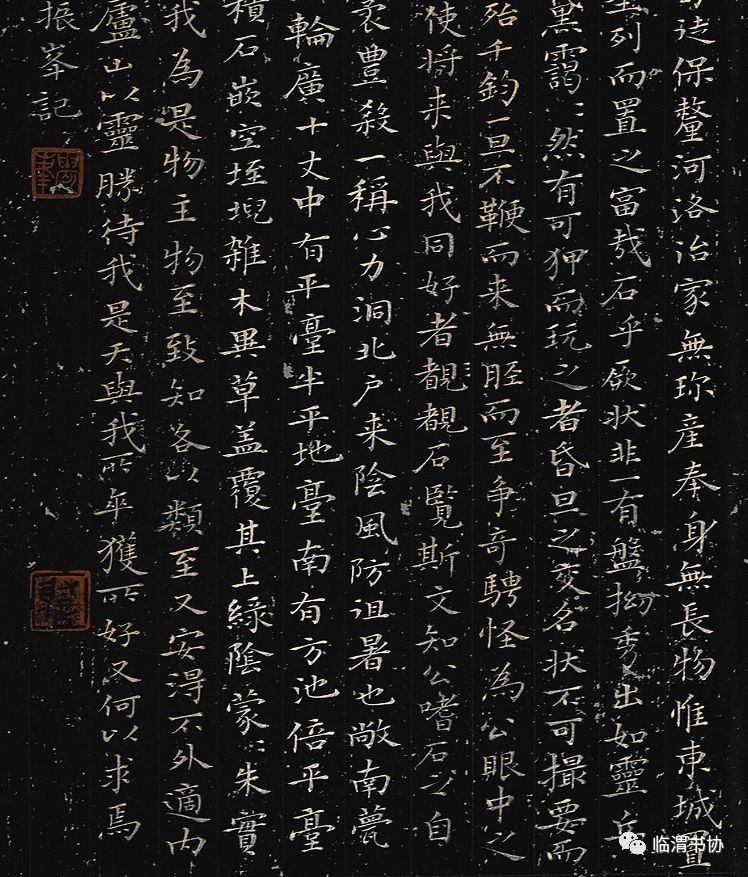 司徒保釐河洛治家無珎產奉身無長物惟東城置
列而置之富哉石乎厥状非一有盤拗秀出如靈丘
黛靄〻然有可狎而玩之者昏旦之交名状不可撮要而
殆千鈞一旦不鞭而来無脛而至争奇騁怪為公眼中之
使将来與我同好者覩覩石覽斯文知公嗜石之自
袤豊殺一稱心力洞北户来陰風防徂暑也敞南甍
輪廣十丈中有平臺半平地臺南有方池倍平臺
積石嵌空垤堄雜木異草盖覆其上緑陰蒙〻朱實
我為是物主物至致知各以類至又安得不外適内
廬山以靈勝待我是天與我所年獲所好又何以求焉
振峯記
临渭书协